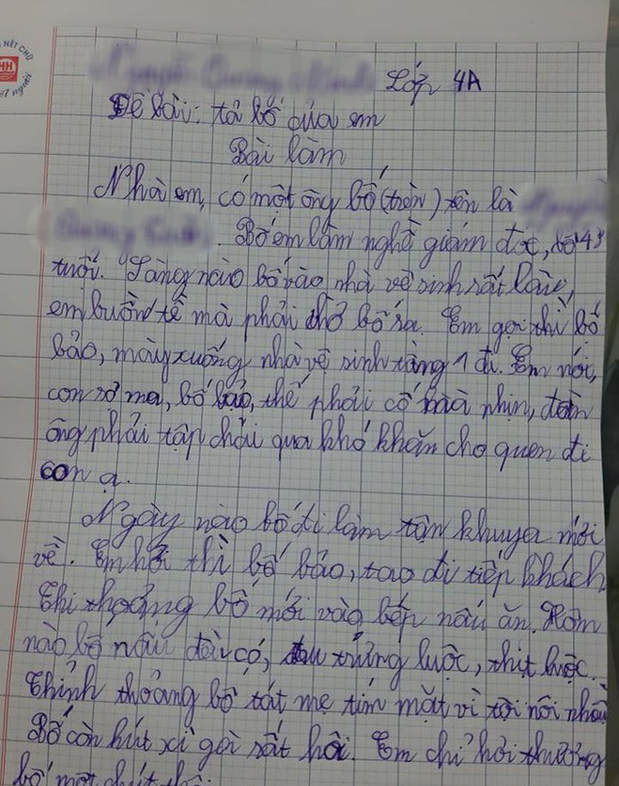 NÉT CHỮ
HH
Lớp 4A
Đề bài: tả bố của em
Bài làm
Nhà em, có một ông bố (trên) tên là
. Bố em làm nghề giám đốc, bố 43
tuổi. Sáng nào bố vào nhà vệ sinh rất lâu,
em buồn tè mà phải chờ bố ra. Em gọi thì bố
bảo, mày xuống nhà vệ sinh tầng 1 đi. Em nói,
con sợ ma, bố bảo, thế phải cố mà nhịn, đàn
ông phải tập chải qua khó khăn cho quen đi
con ạ.
Ngày nào bố đi làm tận khuya mới
về. Em hỏi thì bố bảo, tao đi tiếp khách
Thi thoảng bố mới vào bếp nấu ăn. Hôm
nào bố nấu đều có, trứng luộc, thịt luộc.
Thỉnh thoảng bố tát mẹ tím mặt vì tội nói nhiều
Bố còn hút xì gà rất hôi. Em chỉ hơi thương
bố một chút thôi.